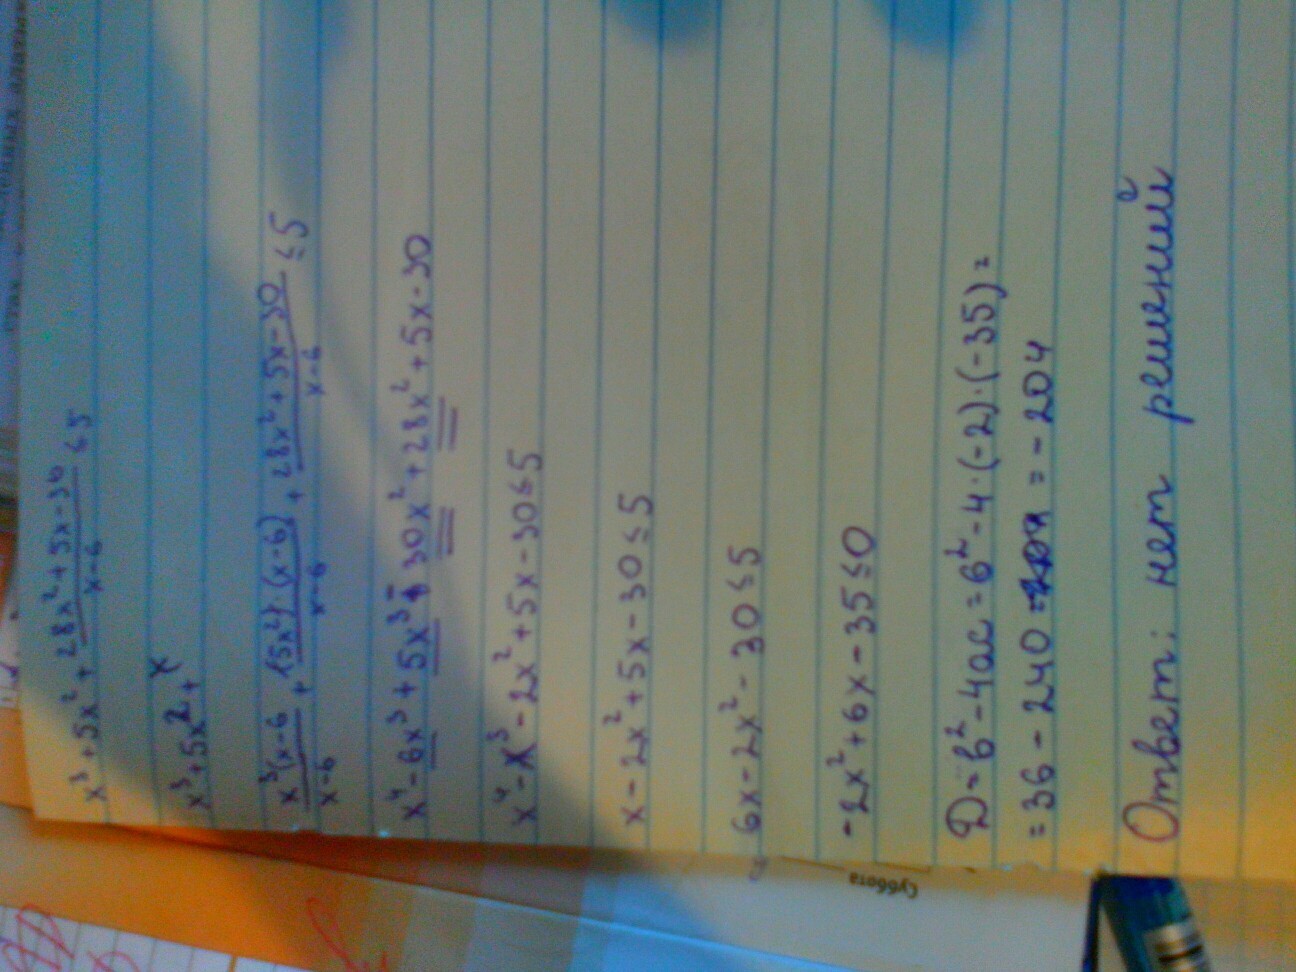 x³ + 5x² + 28x² + 5x - 30 / x - 6 ≤ 5
x³ + 5x² + x
x³(x - 6 / x - 6 + (5x²) · (x - 6) / x - 6 + 28x² + 5x - 30 / x - 6 ≤ 5
x⁴ - 6x³ + 5x³ - 30x² + 28x² + 5x - 30
x⁴ - x³ - 2x² + 5x - 30 ≤ 5
x - 2x² + 5x - 30 ≤ 5
6x - 2x² - 30 ≤ 5
-2x² + 6x - 35 ≤ 0
D = b² - 4ac = 6² - 4 · (-2) · (-35) =
= 36 - 240 = - 204
Ответ: нет решений
Суббота